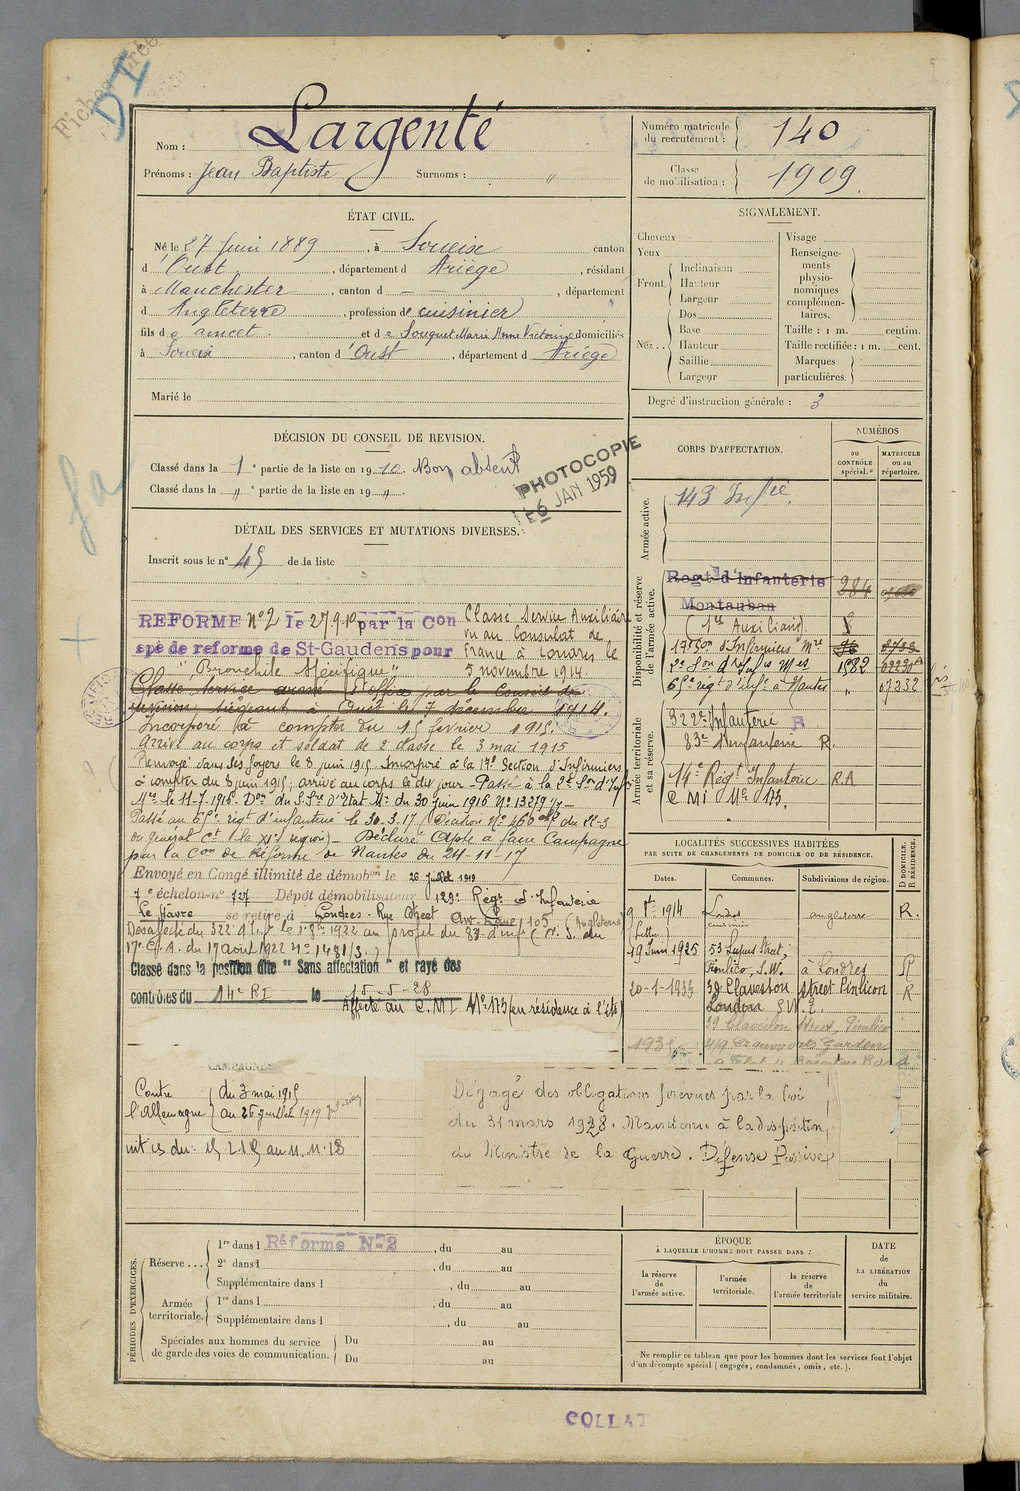 Largenté
Nom :
Prénoms : Jean Baptiste Surnoms : "
Numéro matricule du recrutement : 140
Classe de mobilisation : 1909
ÉTAT CIVIL.
Né le 27 Juin 1889, à Soueix canton
d'Oust, département d Ariège, résidant
à Manchester, canton d — —, département
d Angleterre, profession de cuisinier
fils d et d e Souquet Marie Anne Victorine domiciliés
à Soueix, canton d'Oust, département d Ariège
Marié le
SIGNALEMENT.
Cheveux
Yeux
Front. Inclinaison
Hauteur
Largeur
Nez.. Dos
Base
Hauteur
Saillie
Largeur
Visage
Renseignements physionomiques complémentaires.
Taille : 1 m. centim.
Taille rectifiée : 1 m. cent.
Marques particulières.
Degré d'instruction générale : 3
DÉCISION DU CONSEIL DE REVISION.
Classé dans la 1e partie de la liste en 1910. Bon absent
Classé dans la " e partie de la liste en 19 ".
PHOTOCOPIE
16 JAN 1959
DÉTAIL DES SERVICES ET MUTATIONS DIVERSES.
Inscrit sous le n° 45 de la liste
REFORME N°2 le 27.9.10 par la Con
spé de reforme de St-Gaudens pour
Classé Service Auxiliaire
vu au Consulat de
France à Londres le
5 novembre 1914.
Classé service armé d'office par le Conseil de
revision siégeant à Oust le 7 décembre 1914.
Incorporé à compter du 15 fevrier 1915.
Arrivé au corps et soldat de 2e classe le 3 mai 1915
Renvoyé dans ses foyers le 8 juin 1915. Incorporé à la 17e Section d'Infirmiers
à compter du 8 juin 1915; arrivé au corps le dit jour - Passé à la 2e Son d'Infrs
Mres le 11-7-1916. Don du S.Sre d'Etat Mre du 30 Juin 1916 N° 13279
Passé au 65e régt d'infanterie le 30.3.17 du
du général Ct la XIe région) - Déclaré Apte à faire Campagne
par la Con de Réforme de Nantes du 24-11-17
Envoyé en Congé illimité de démobon le 26 juillet 1919
7e échelon n° 727 Dépôt démobilisateur 129e Régt d'Infanterie
Le Havre se retire à Londres. Rue Street 105 (Angleterre)
Désaffecté du 322e au profit du 83e d'inf
17e C.A. du 17 aout 1922 N° 1481/3.)
Classé dans la position dite " Sans affectation " et rayé des
contrôles du 14e RI le 15-5-28
Affecté au C.M.I N° 173 (en résidence à l'étr)
CORPS D'AFFECTATION.
NUMÉROS
au CONTRÔLE spécial.
MATRICULE ou au répertoire.
Armée active.
143 Infie
Disponibilité et réserve de l'armée active.
Regt d'Infanterie 284
Montauban
17e Son d'Infirmiers Mres
2e Son d'Infrs Mres 1582
65e regt d'infie à Nantes " 07232
Armée territoriale et sa réserve.
322e Infanterie B
83e Infanterie R.
14e Régt Infanterie R.A
C MI No 173.
LOCALITÉS SUCCESSIVES HABITÉES
PAR SUITE DE CHANGEMENTS DE DOMICILE OU DE RÉSIDENCE.
Dates. Communes. Subdivisions de région. D DOMICILE. R RÉSIDENCE.
1914 Londres angleterre R.
19 Juin 1925 53 Lupus Street,
Pimlico, S.W. à Londres R
20-1-1933 39 Claveston Street Pimlicon R
London S.W.
39 Claverton Street, Pimlico
CAMPAGNES
Contre
l'Allemagne
du 3 mai 1915
au 26 juillet 1919
unités du 15.2.15 au 11.11.18
Dégagé des obligations prévues par la loi
du 31 mars 1928. Maintenu à la disposition
du Ministre de la Guerre. Défense Passive
PÉRIODES D'EXERCICES.
Réserve ... 1re dans l Réforme N° 2, du au
2e dans l, du au
Supplémentaire dans l, du au
Armée territoriale. 1re dans l, du au
Supplémentaire dans l, du au
Spéciales aux hommes du service
de garde des voies de communication. Du au
Du au
ÉPOQUE
À LAQUELLE L'HOMME DOIT PASSER DANS :
la réserve de l'armée active.
l'armée territoriale.
la réserve de l'armée territoriale
DATE de LA LIBÉRATION du service militaire.
Ne remplir ce tableau que pour les hommes dont les services font l'objet
d'un décompte spécial (engagés, condamnés, omis, etc.).
COLLAT